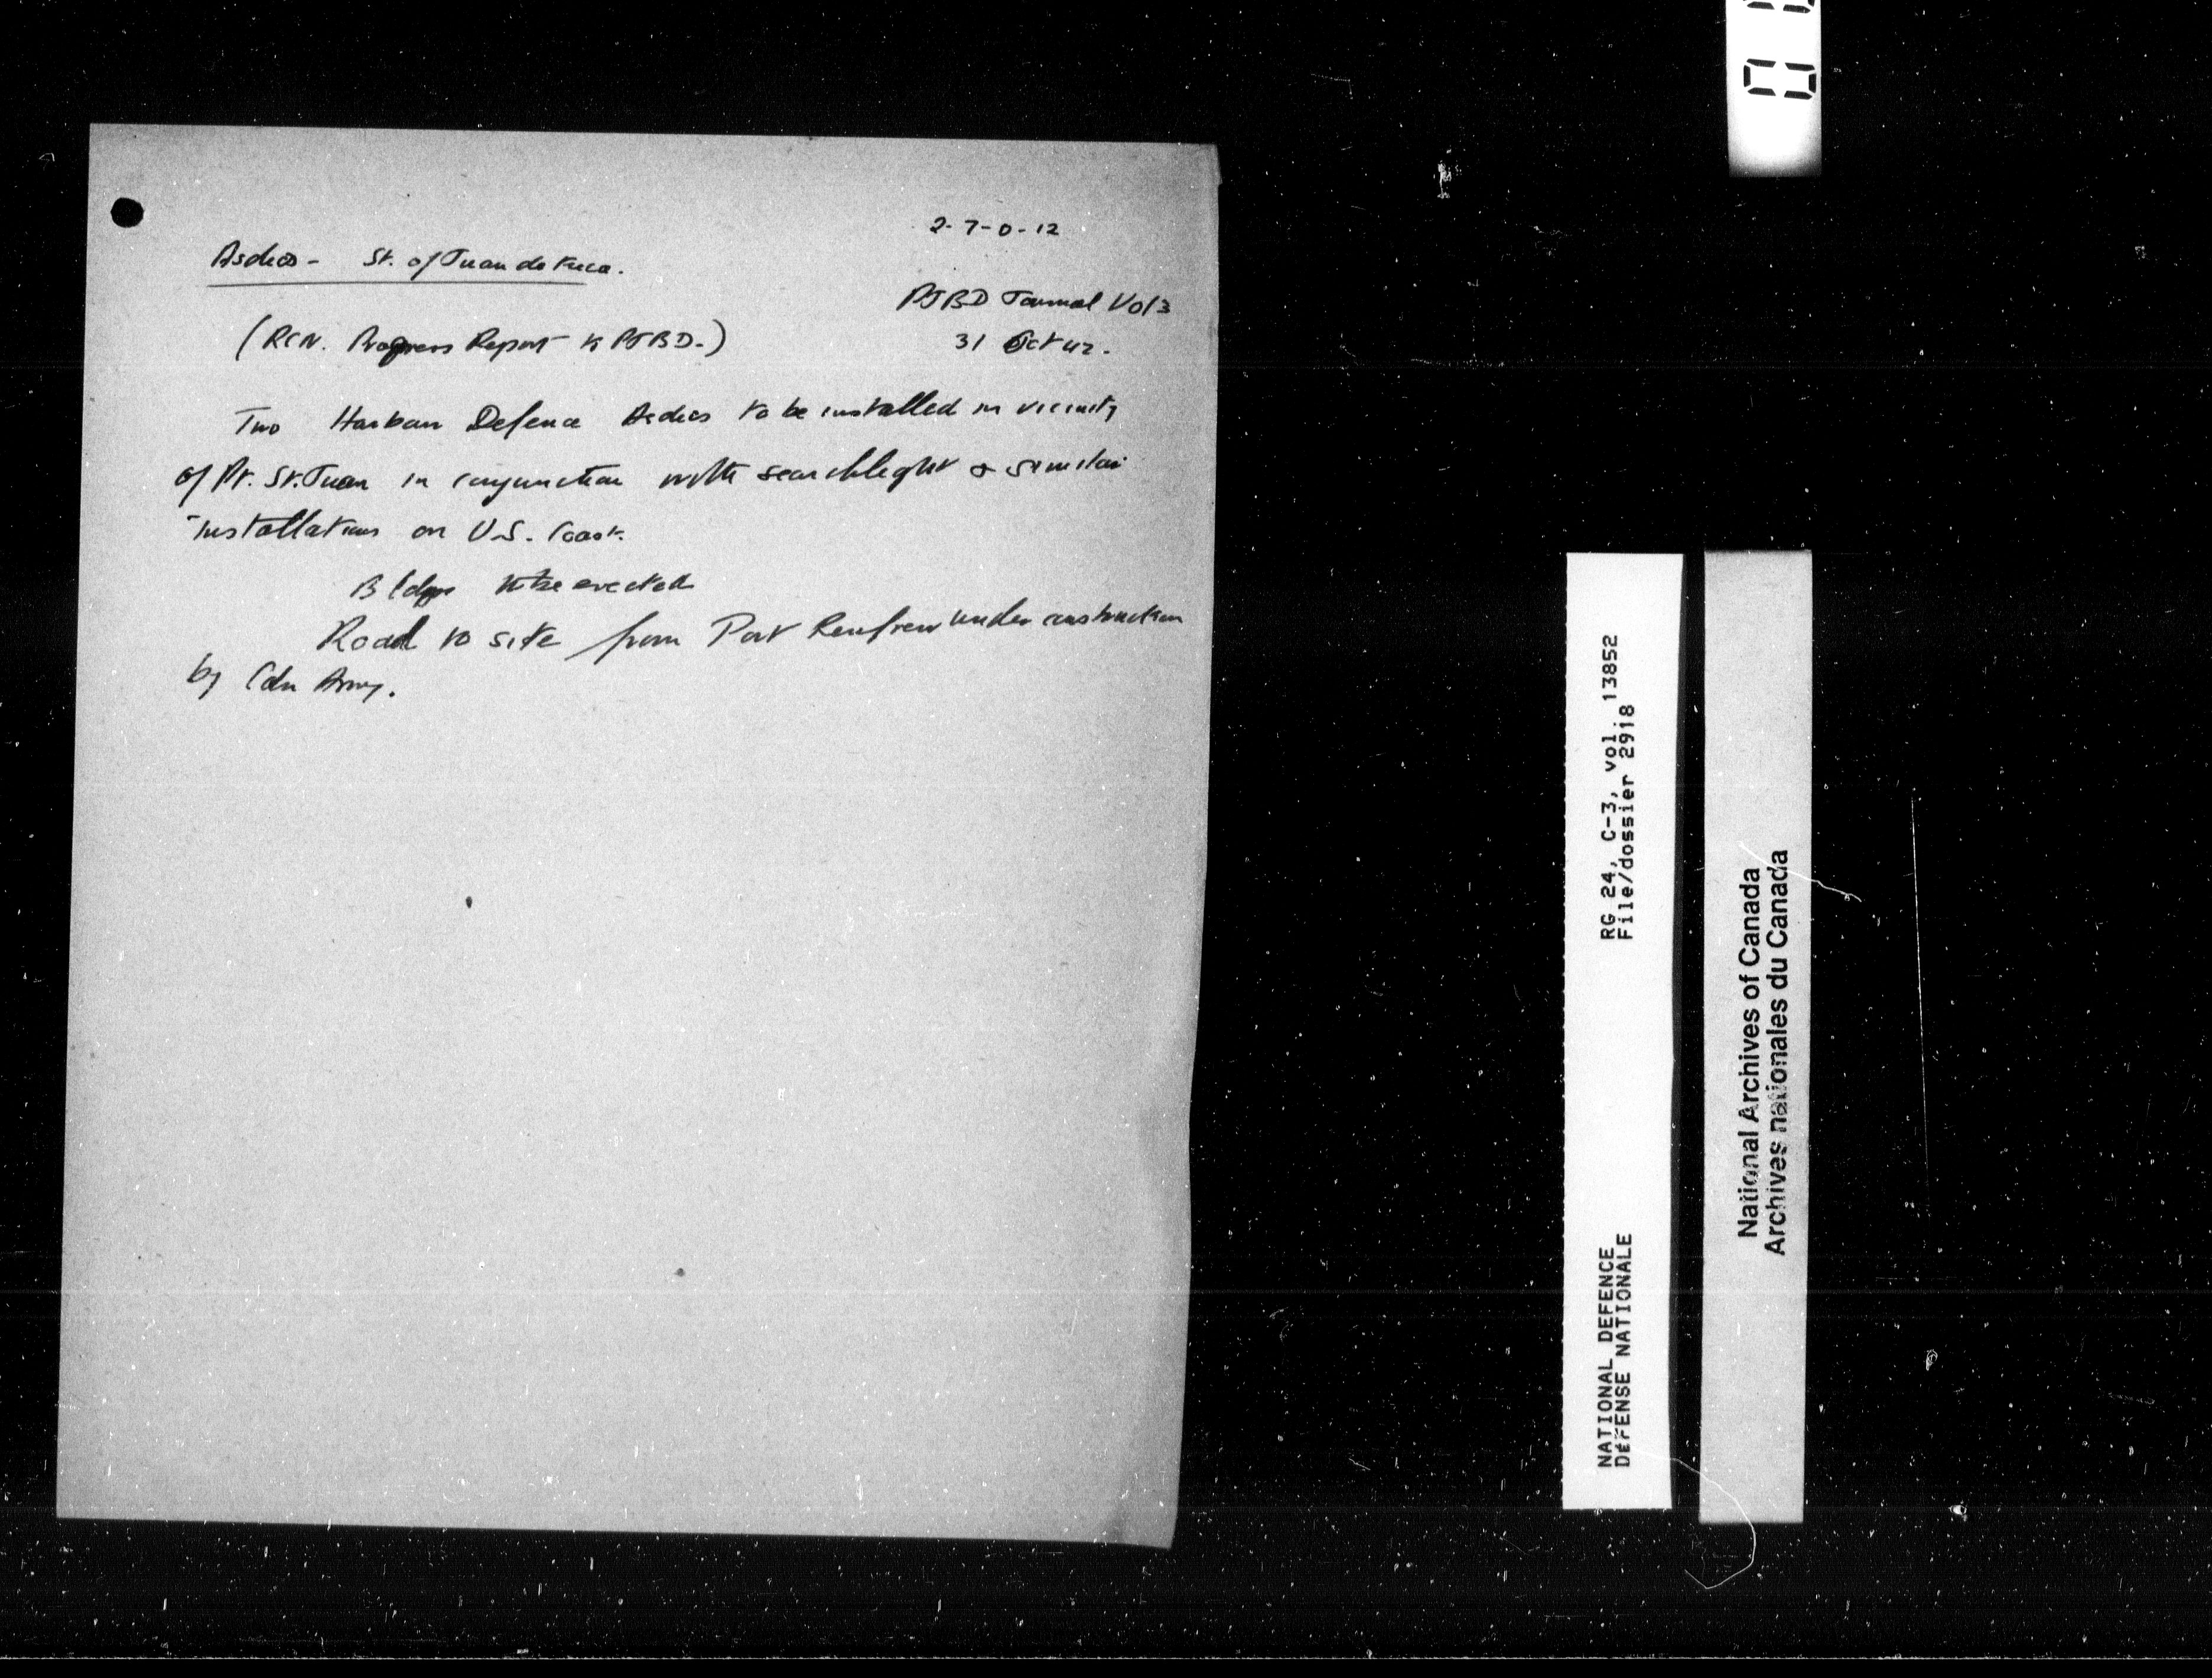 2-7-0-12
Asdics - St. of Juan de Fuca.
PJBD Journal Vol 3
(RCN. Progress Report to PJBD.)
31 Oct 42.
Two Harbour Defence Asdics to be installed in vicinity
of Pt. St. Juan in conjunction with searchlight & similar
installations on U.S. Coast.
Bldgs to be erected
Road to site from Port Renfrew under construction
by Cdn Army.
RG 24, C-3, vol. 13852
File/dossier 2918
NATIONAL DEFENCE
DÉFENSE NATIONALE
National Archives of Canada
Archives nationales du Canada